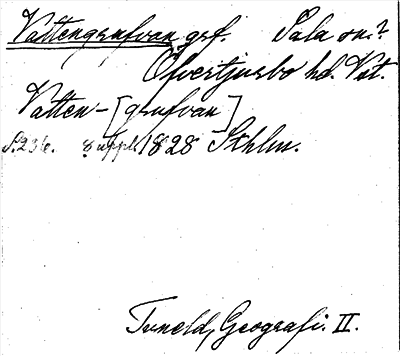 Vattengrufvan grf. Sala om?
Öfvertjurbo hd. Vst.
Vatten-[grufvan]
S. 236. 8 uppl. 1828 Sthlm.
Tuneld, Geografi. II.